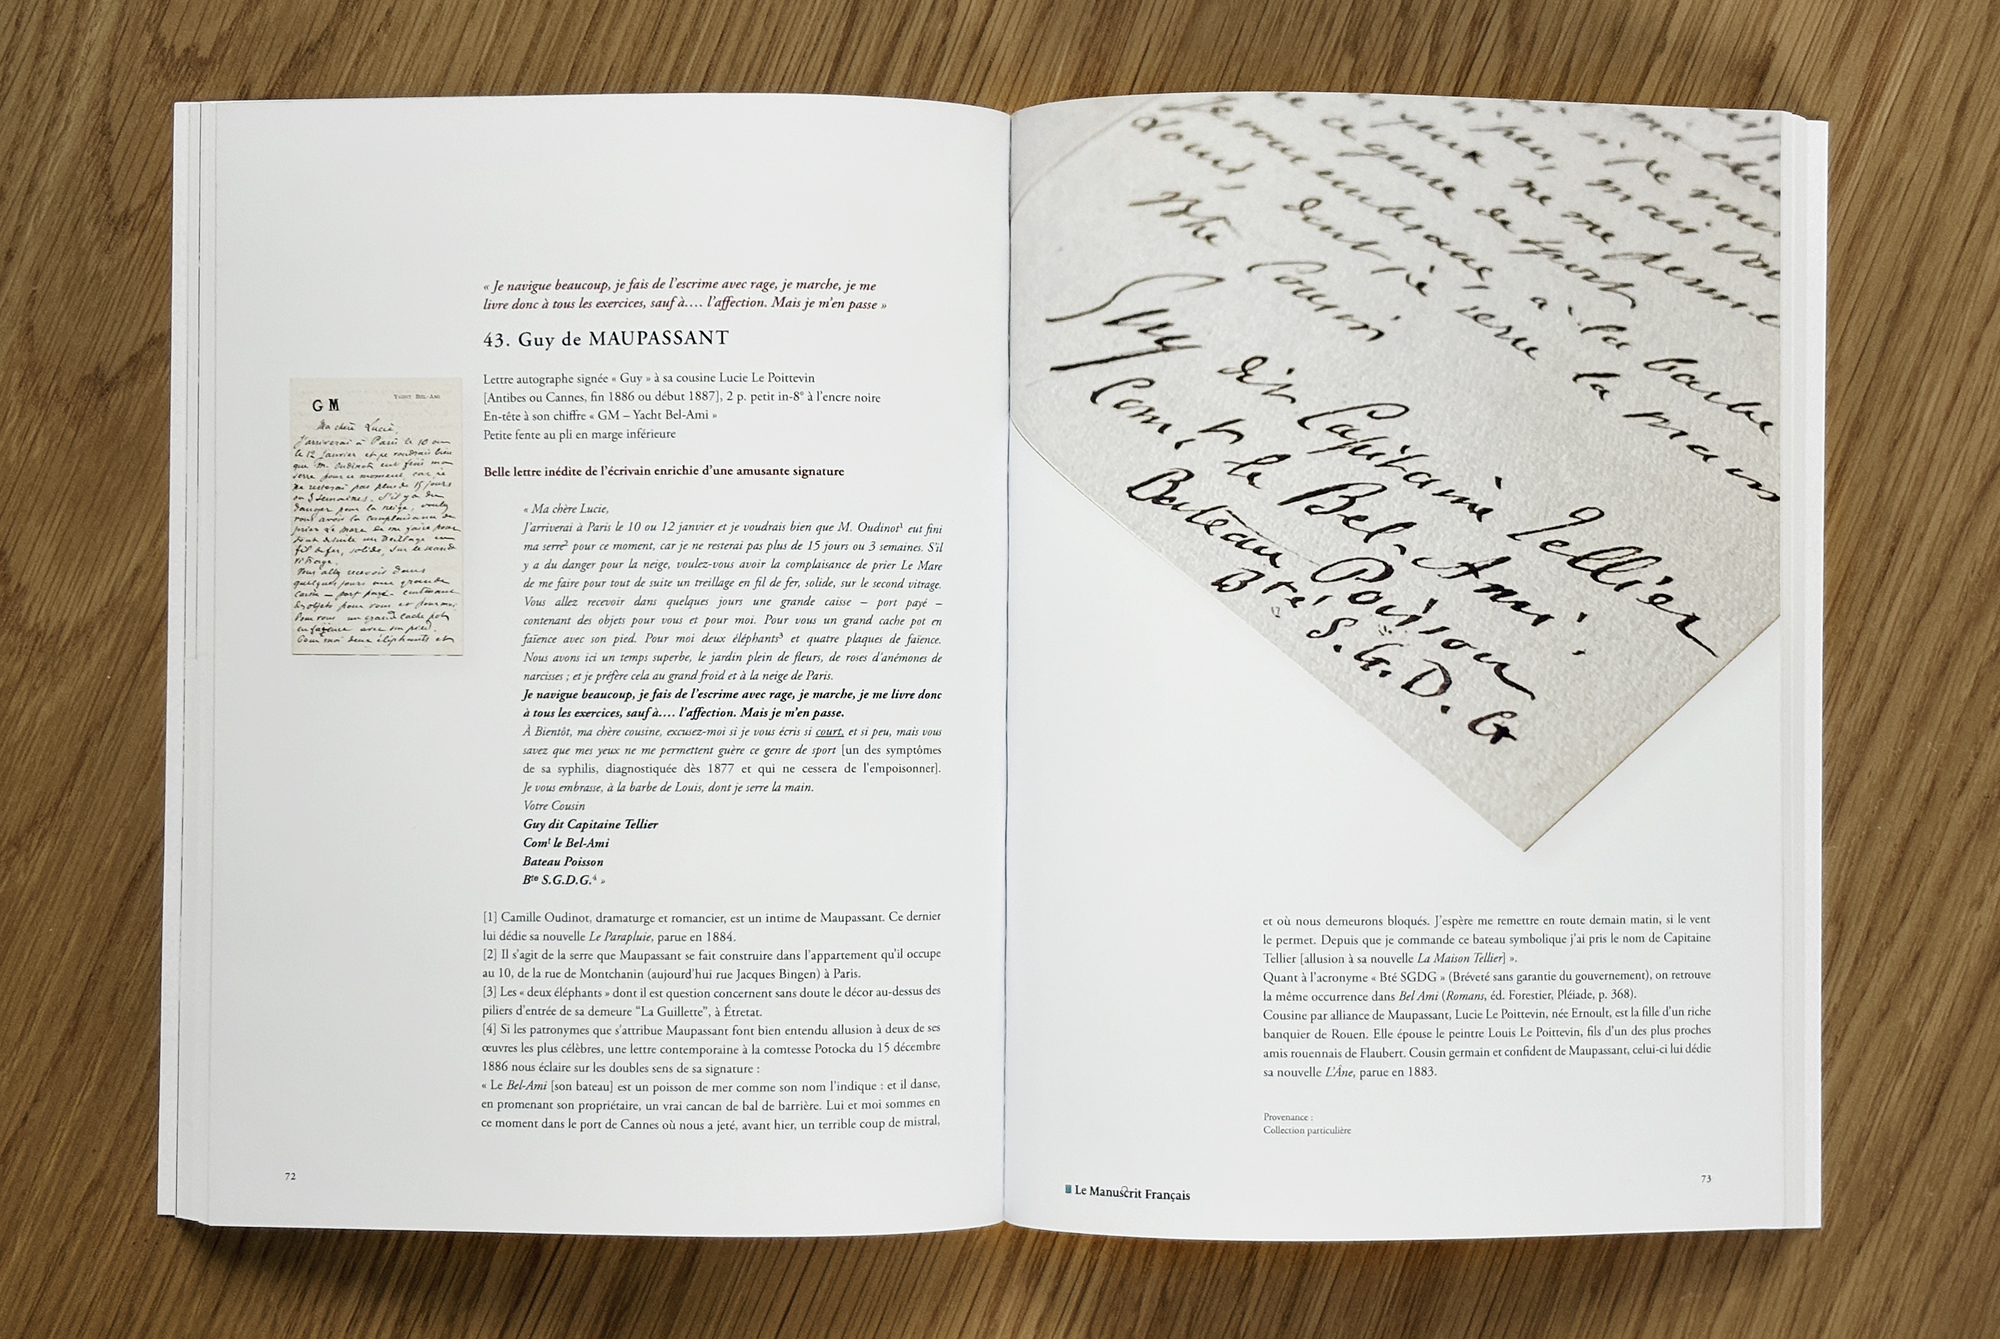 « Je navigue beaucoup, je fais de l'escrime avec rage, je marche, je me
livre donc à tous les exercices, sauf à…. l'affection. Mais je m'en passe »
43. Guy de MAUPASSANT
Lettre autographe signée « Guy » à sa cousine Lucie Le Poittevin
[Antibes ou Cannes, fin 1886 ou début 1887], 2 p. petit in-8° à l'encre noire
En-tête à son chiffre « GM – Yacht Bel-Ami »
Petite fente au pli en marge inférieure
Belle lettre inédite de l'écrivain enrichie d'une amusante signature
« Ma chère Lucie,
J'arriverai à Paris le 10 ou 12 janvier et je voudrais bien que M. Oudinot¹ eut fini
ma serre² pour ce moment, car je ne resterai pas plus de 15 jours ou 3 semaines. S'il
y a du danger pour la neige, voulez-vous avoir la complaisance de prier Le Mare
de me faire pour tout de suite un treillage en fil de fer, solide, sur le second vitrage.
Vous allez recevoir dans quelques jours une grande caisse – port payé –
contenant des objets pour vous et pour moi. Pour vous un grand cache pot en
faïence avec son pied. Pour moi deux éléphants³ et quatre plaques de faïence.
Nous avons ici un temps superbe, le jardin plein de fleurs, de roses d'anémones de
narcisses ; et je préfère cela au grand froid et à la neige de Paris.
Je navigue beaucoup, je fais de l'escrime avec rage, je marche, je me livre donc
à tous les exercices, sauf à…. l'affection. Mais je m'en passe.
À Bientôt, ma chère cousine, excusez-moi si je vous écris si court, et si peu, mais vous
savez que mes yeux ne me permettent guère ce genre de sport [un des symptômes
de sa syphilis, diagnostiquée dès 1877 et qui ne cessera de l'empoisonner].
Je vous embrasse, à la barbe de Louis, dont je serre la main.
Votre Cousin
Guy dit Capitaine Tellier
Comᵗ le Bel-Ami
Bateau Poisson
Bᵗᵉ S.G.D.G.⁴ »
[1] Camille Oudinot, dramaturge et romancier, est un intime de Maupassant. Ce dernier
lui dédie sa nouvelle Le Parapluie, parue en 1884.
[2] Il s'agit de la serre que Maupassant se fait construire dans l'appartement qu'il occupe
au 10, de la rue de Montchanin (aujourd'hui rue Jacques Bingen) à Paris.
[3] Les « deux éléphants » dont il est question concernent sans doute le décor au-dessus des
piliers d'entrée de sa demeure "La Guillette", à Étretat.
[4] Si les patronymes que s'attribue Maupassant font bien entendu allusion à deux de ses
œuvres les plus célèbres, une lettre contemporaine à la comtesse Potocka du 15 décembre
1886 nous éclaire sur les doubles sens de sa signature :
« Le Bel-Ami [son bateau] est un poisson de mer comme son nom l'indique : et il danse,
en promenant son propriétaire, un vrai cancan de bal de barrière. Lui et moi sommes en
ce moment dans le port de Cannes où nous a jeté, avant hier, un terrible coup de mistral,
72
G M
Yacht Bel-Ami
Ma chère Lucie,
J'arriverai à Paris le 10 ou
le 12 Janvier et je voudrais bien
que M. Oudinot eut fini ma
serre pour ce moment car je
ne resterai pas plus de 15 jours
ou 3 semaines. S'il y a du
danger pour la neige, voulez
vous avoir la complaisance de
prier Le Mare de me faire pour
tout de suite un treillage en
fil de fer, solide, sur le second
vitrage.
Vous allez recevoir dans
quelques jours une grande
caisse – port payé – contenant
des objets pour vous et pour moi.
Pour vous un grand cache pot
en faïence avec son pied.
Pour moi deux éléphants et
ma chère
si je vous
peu, mais vous
yeux ne me permettent
guère ce genre de sport
Je vous embrasse, à la barbe
Louis, dont je serre la main
Votre Cousin
Guy dit Capitaine Tellier
Comt le Bel-Ami
Bateau Poisson
Bté S.G.D.G
et où nous demeurons bloqués. J'espère me remettre en route demain matin, si le vent
le permet. Depuis que je commande ce bateau symbolique j'ai pris le nom de Capitaine
Tellier [allusion à sa nouvelle La Maison Tellier] ».
Quant à l'acronyme « Bté SGDG » (Bréveté sans garantie du gouvernement), on retrouve
la même occurrence dans Bel Ami (Romans, éd. Forestier, Pléiade, p. 368).
Cousine par alliance de Maupassant, Lucie Le Poittevin, née Ernoult, est la fille d'un riche
banquier de Rouen. Elle épouse le peintre Louis Le Poittevin, fils d'un des plus proches
amis rouennais de Flaubert. Cousin germain et confident de Maupassant, celui-ci lui dédie
sa nouvelle L'Âne, parue en 1883.
Provenance :
Collection particulière
Le Manuscrit Français
73